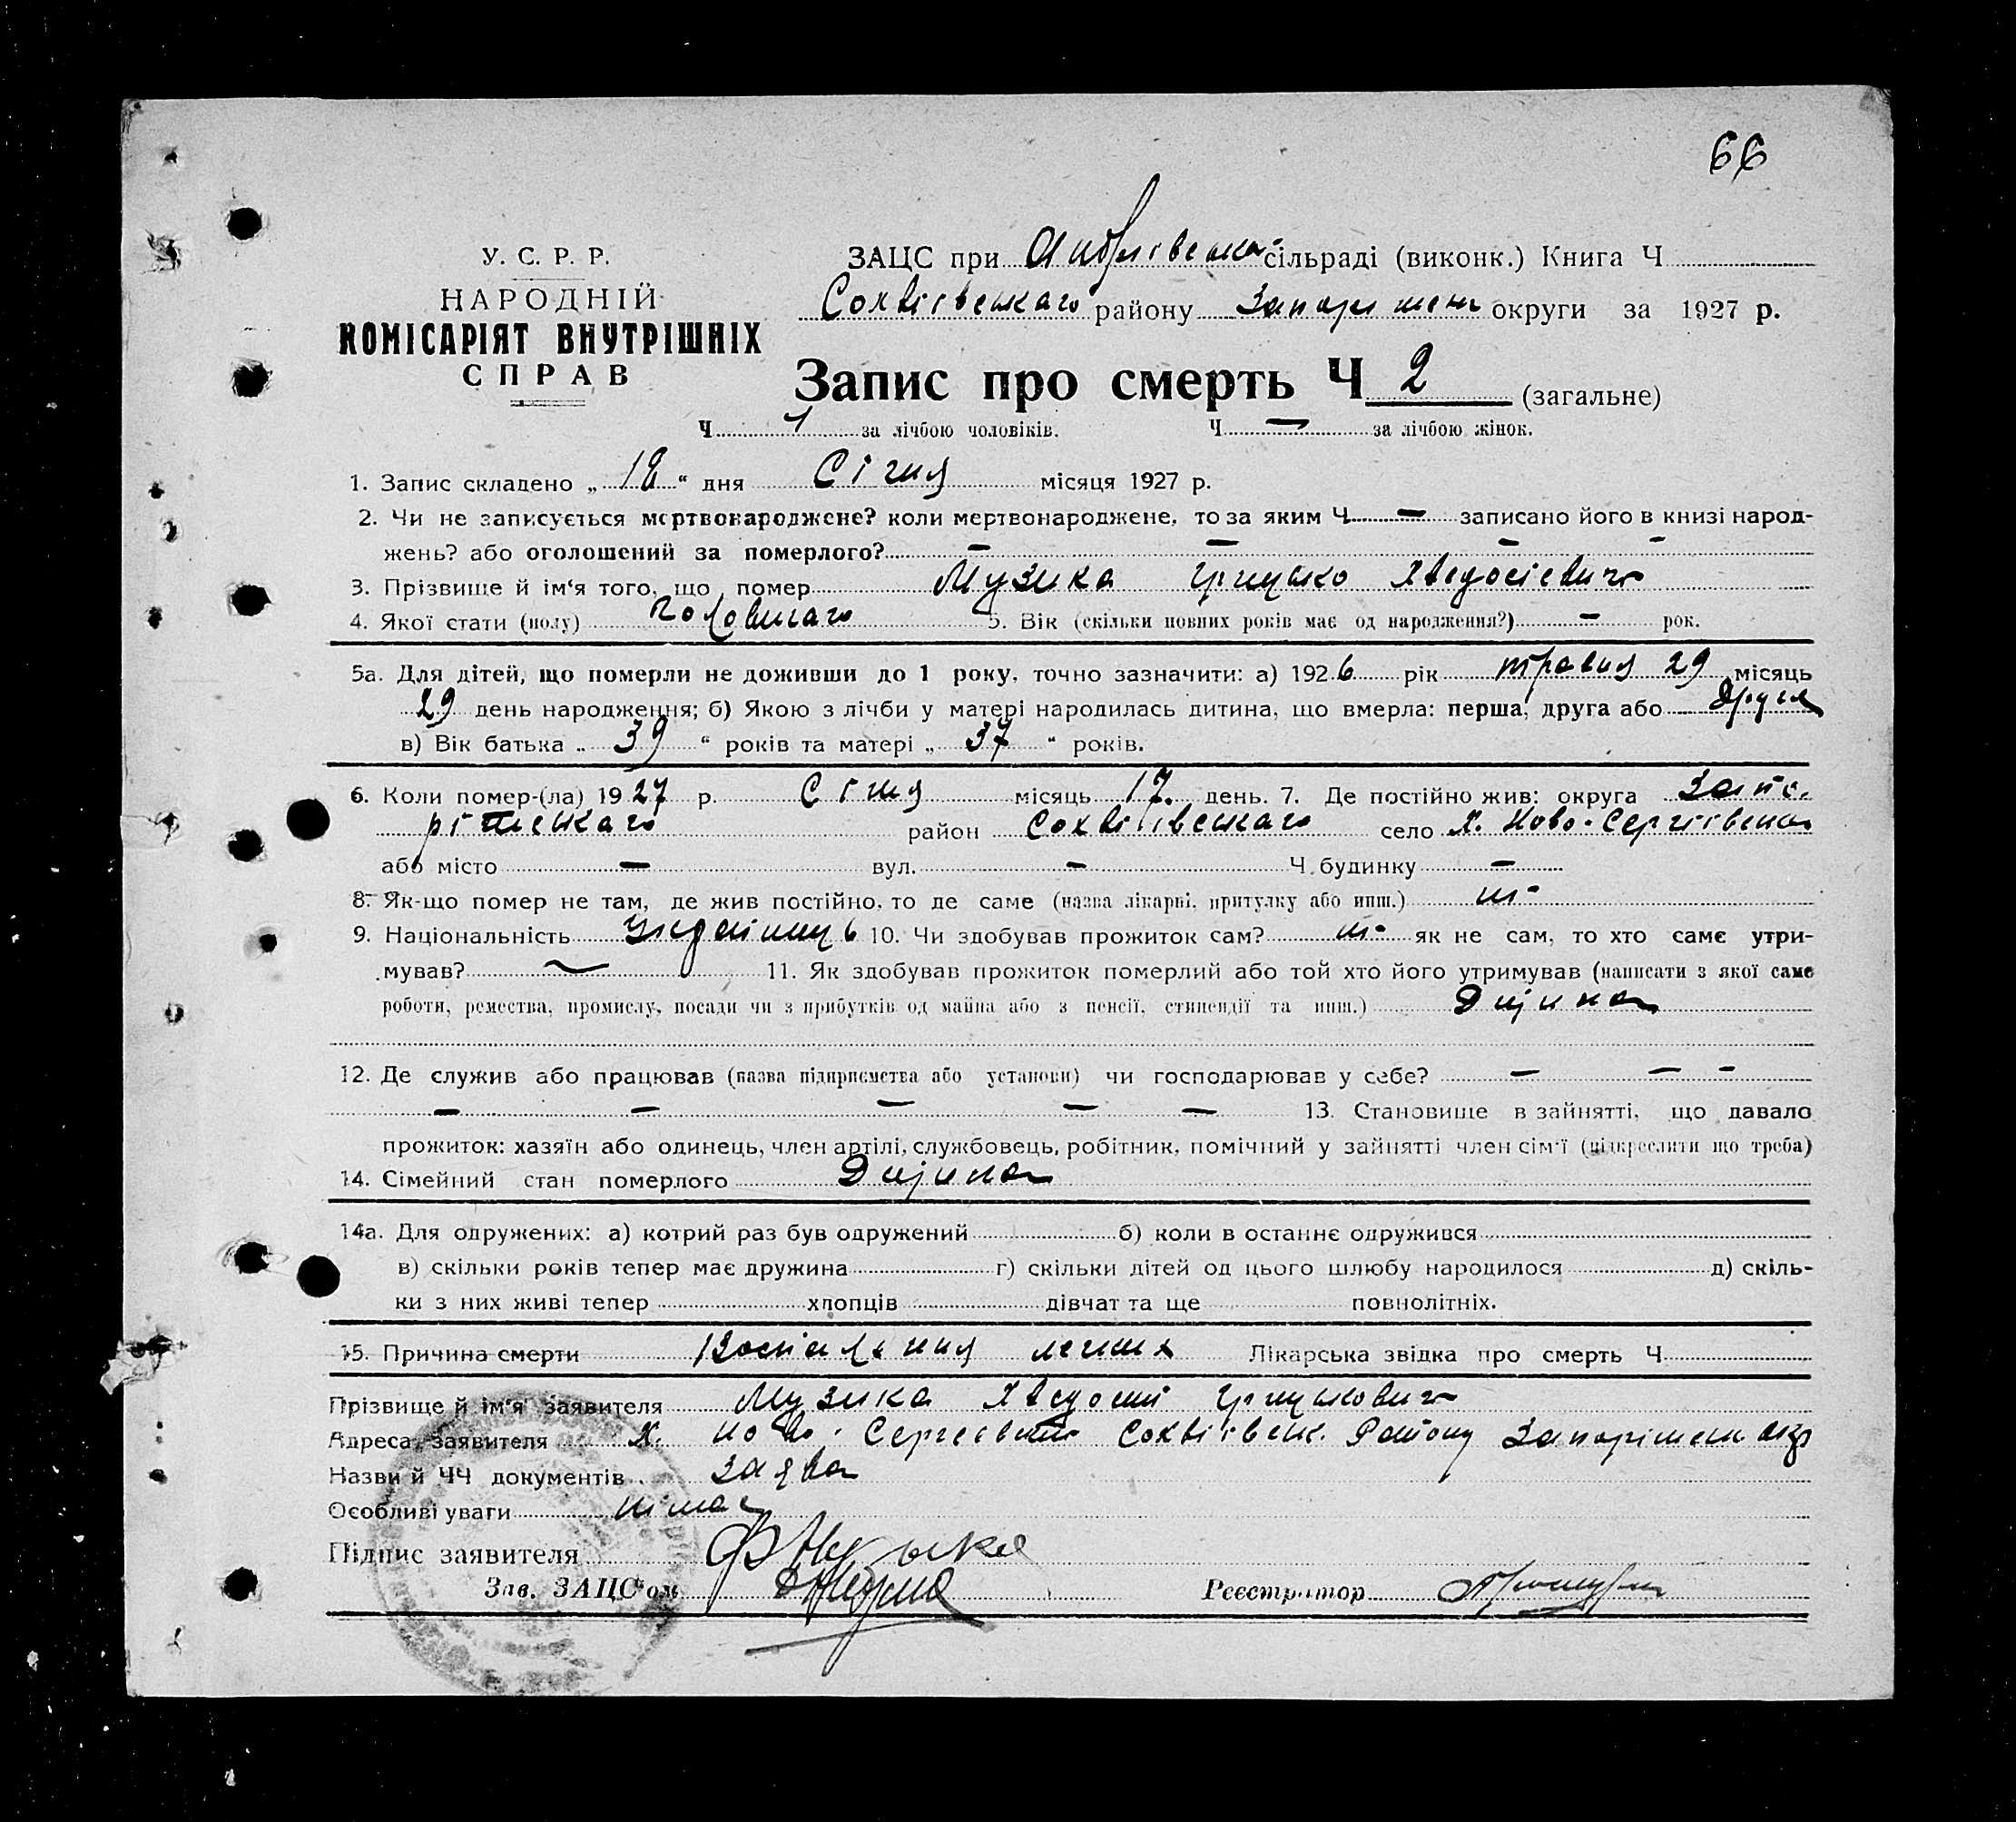 66
У. С. Р. Р.
НАРОДНІЙ
КОМІСАРІЯТ ВНУТРІШНІХ
СПРАВ
ЗАЦС при сільраді (виконк.) Книга Ч
Софіївського району округи за 1927 р.
Запис про смерть Ч 2 (загальне)
Ч 1 за лічбою чоловіків. Ч — за лічбою жінок.
1. Запис складено „ 18 “ дня Січня місяця 1927 р.
2. Чи не записується мертвонароджене? коли мертвонароджене, то за яким Ч — записано його в книзі народ-
жень? або оголошений за померлого? — — — —
3. Прізвище й ім'я того, що помер Музика Грицько Хведосієвич
4. Якої стати (полу) 5. Вік (скільки повних років має од народження?) — рок.
5а. Для дітей, що померли не доживши до 1 року, точно зазначити: а) 1926 рік травня 29 місяць
29 день народження; б) Якою з лічби у матері народилась дитина, що вмерла: перша, друга або друга
в) Вік батька „ 39 “ років та матері „ 37 “ років.
6. Коли помер-(ла) 1927 р. Січня місяць 17. день. 7. Де постійно жив: округа Запо-
різького район Софіївського село Х. Ново-Сергіївка
або місто — вул. — Ч. будинку —
8. Як-що помер не там, де жив постійно, то де саме (назва лікарні, притулку або инш.)
9. Національність Українець 10. Чи здобував прожиток сам? як не сам, то хто саме утри-
мував? 11. Як здобував прожиток померлий або той хто його утримував (написати з якої саме
роботи, ремества, промислу, посади чи з прибутків од майна або з пенсії, стипендії та инш.) Дитина
12. Де служив або працював (назва підприємства або установи) чи господарював у себе? — — —
— — — — — 13. Становище в зайнятті, що давало
прожиток: хазяїн або одинець, член артілі, службовець, робітник, помічний у зайнятті член сім'ї (підкреслити що треба)
14. Сімейний стан померлого Дитина
14а. Для одружених: а) котрий раз був одружений б) коли в останнє одружився
в) скільки років тепер має дружина г) скільки дітей од цього шлюбу народилося д) скіль-
ки з них живі тепер хлопців дівчат та ще повнолітніх.
15. Причина смерти легких Лікарська звідка про смерть Ч
Прізвище й ім'я заявителя Музика Хведосій Грицькович
Адреса заявителя Х. Ново-Сергеєвка Софіївськ. Району Запоріжськ окр
Назви й ЧЧ документів заява
Особливі уваги німає
Підпис заявителя Ф Музыка
Зав. ЗАЦС'ом Реєстратор